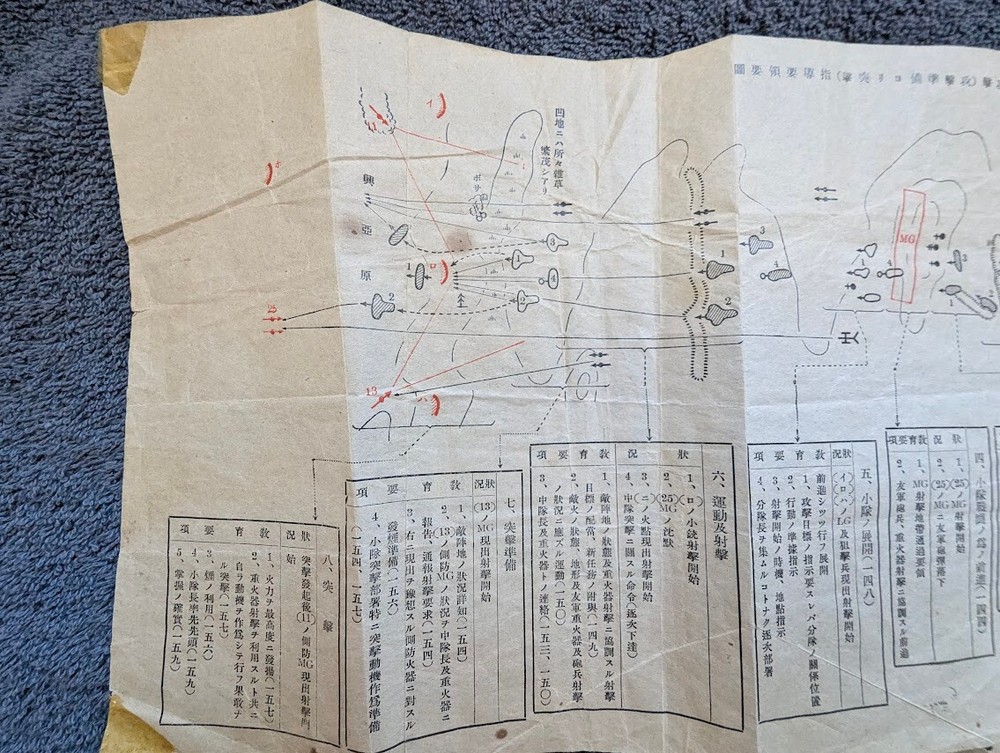 撃(攻撃準備ヨリ突撃)指導要領要圖
MG
凹地ニハ所々雜草
繁茂シアリ
ボサ
興亞原
イ
ロ
ハ
11
13
25
1
2
3
4
1
2
3
4
1
2
四、小隊戰鬪ノ爲ノ前進(一四四)
狀況
1、(25)ノMG射擊開始
2、(25)ノMGニ友軍砲彈落下
教育要項
1、MG射擊地帶通過要領
2、友軍砲兵、重火器射擊ニ協調スル前進
五、小隊ノ展開(一四八)
狀況
イ、ロ、ハ、LG及狙擊長現出射擊開始
教育要項
前進シツツ行フ展開
1、攻擊目標ノ指示要スレバ分隊ノ關係位置
2、行動ノ準據指示
3、射擊開始ノ時機、地點指示
4、分隊長ヲ集ムルコトナク逐次部署
六、運動及射擊
狀況
1、ロノ小銃射擊開始
2、25MGノ沈默
3、ニノ火點現出射擊開始
4、中隊突擊ニ關スル命令(逐次下達)
教育要項
1、敵陣地ノ狀態及重火器射擊ニ協調スル射擊
目標ノ配當、新任務ノ附與(一四九)
2、敵火ノ狀態、地形及友軍重火器及砲兵射擊
ノ狀況ニ應ズル運動(一五〇)
3、中隊長及重火器トノ連絡(一五三、二五〇)
七、突擊準備
狀況
(13)ノMG現出射擊開始
教育要項
1、敵陣地ノ狀況詳知(一五四)
2、(13)ノ側防MGノ狀況ヲ中隊長及重火器ニ
報告、通報射擊要求(一五四)
3、右ニ現出ヲ豫想スル側防火器ニ對スル
發煙準備(一五六)
4、小隊突擊部署特ニ突擊動機作爲準備
(一五四、一五七)
八、突擊
狀況
突擊發起後(11)ノ側防MG現出射擊開
始
教育要項
1、火力ヲ最高度ニ發揚(一五七)
2、重火器射擊ヲ利用スルト共ニ
自ラ動機ヲ作爲シテ行フ果敢ナ
ル突擊(一五七)
3、煙ノ利用(一五六)
4、小隊長率先先頭(一五九)
5、掌握ノ確實(一五九)